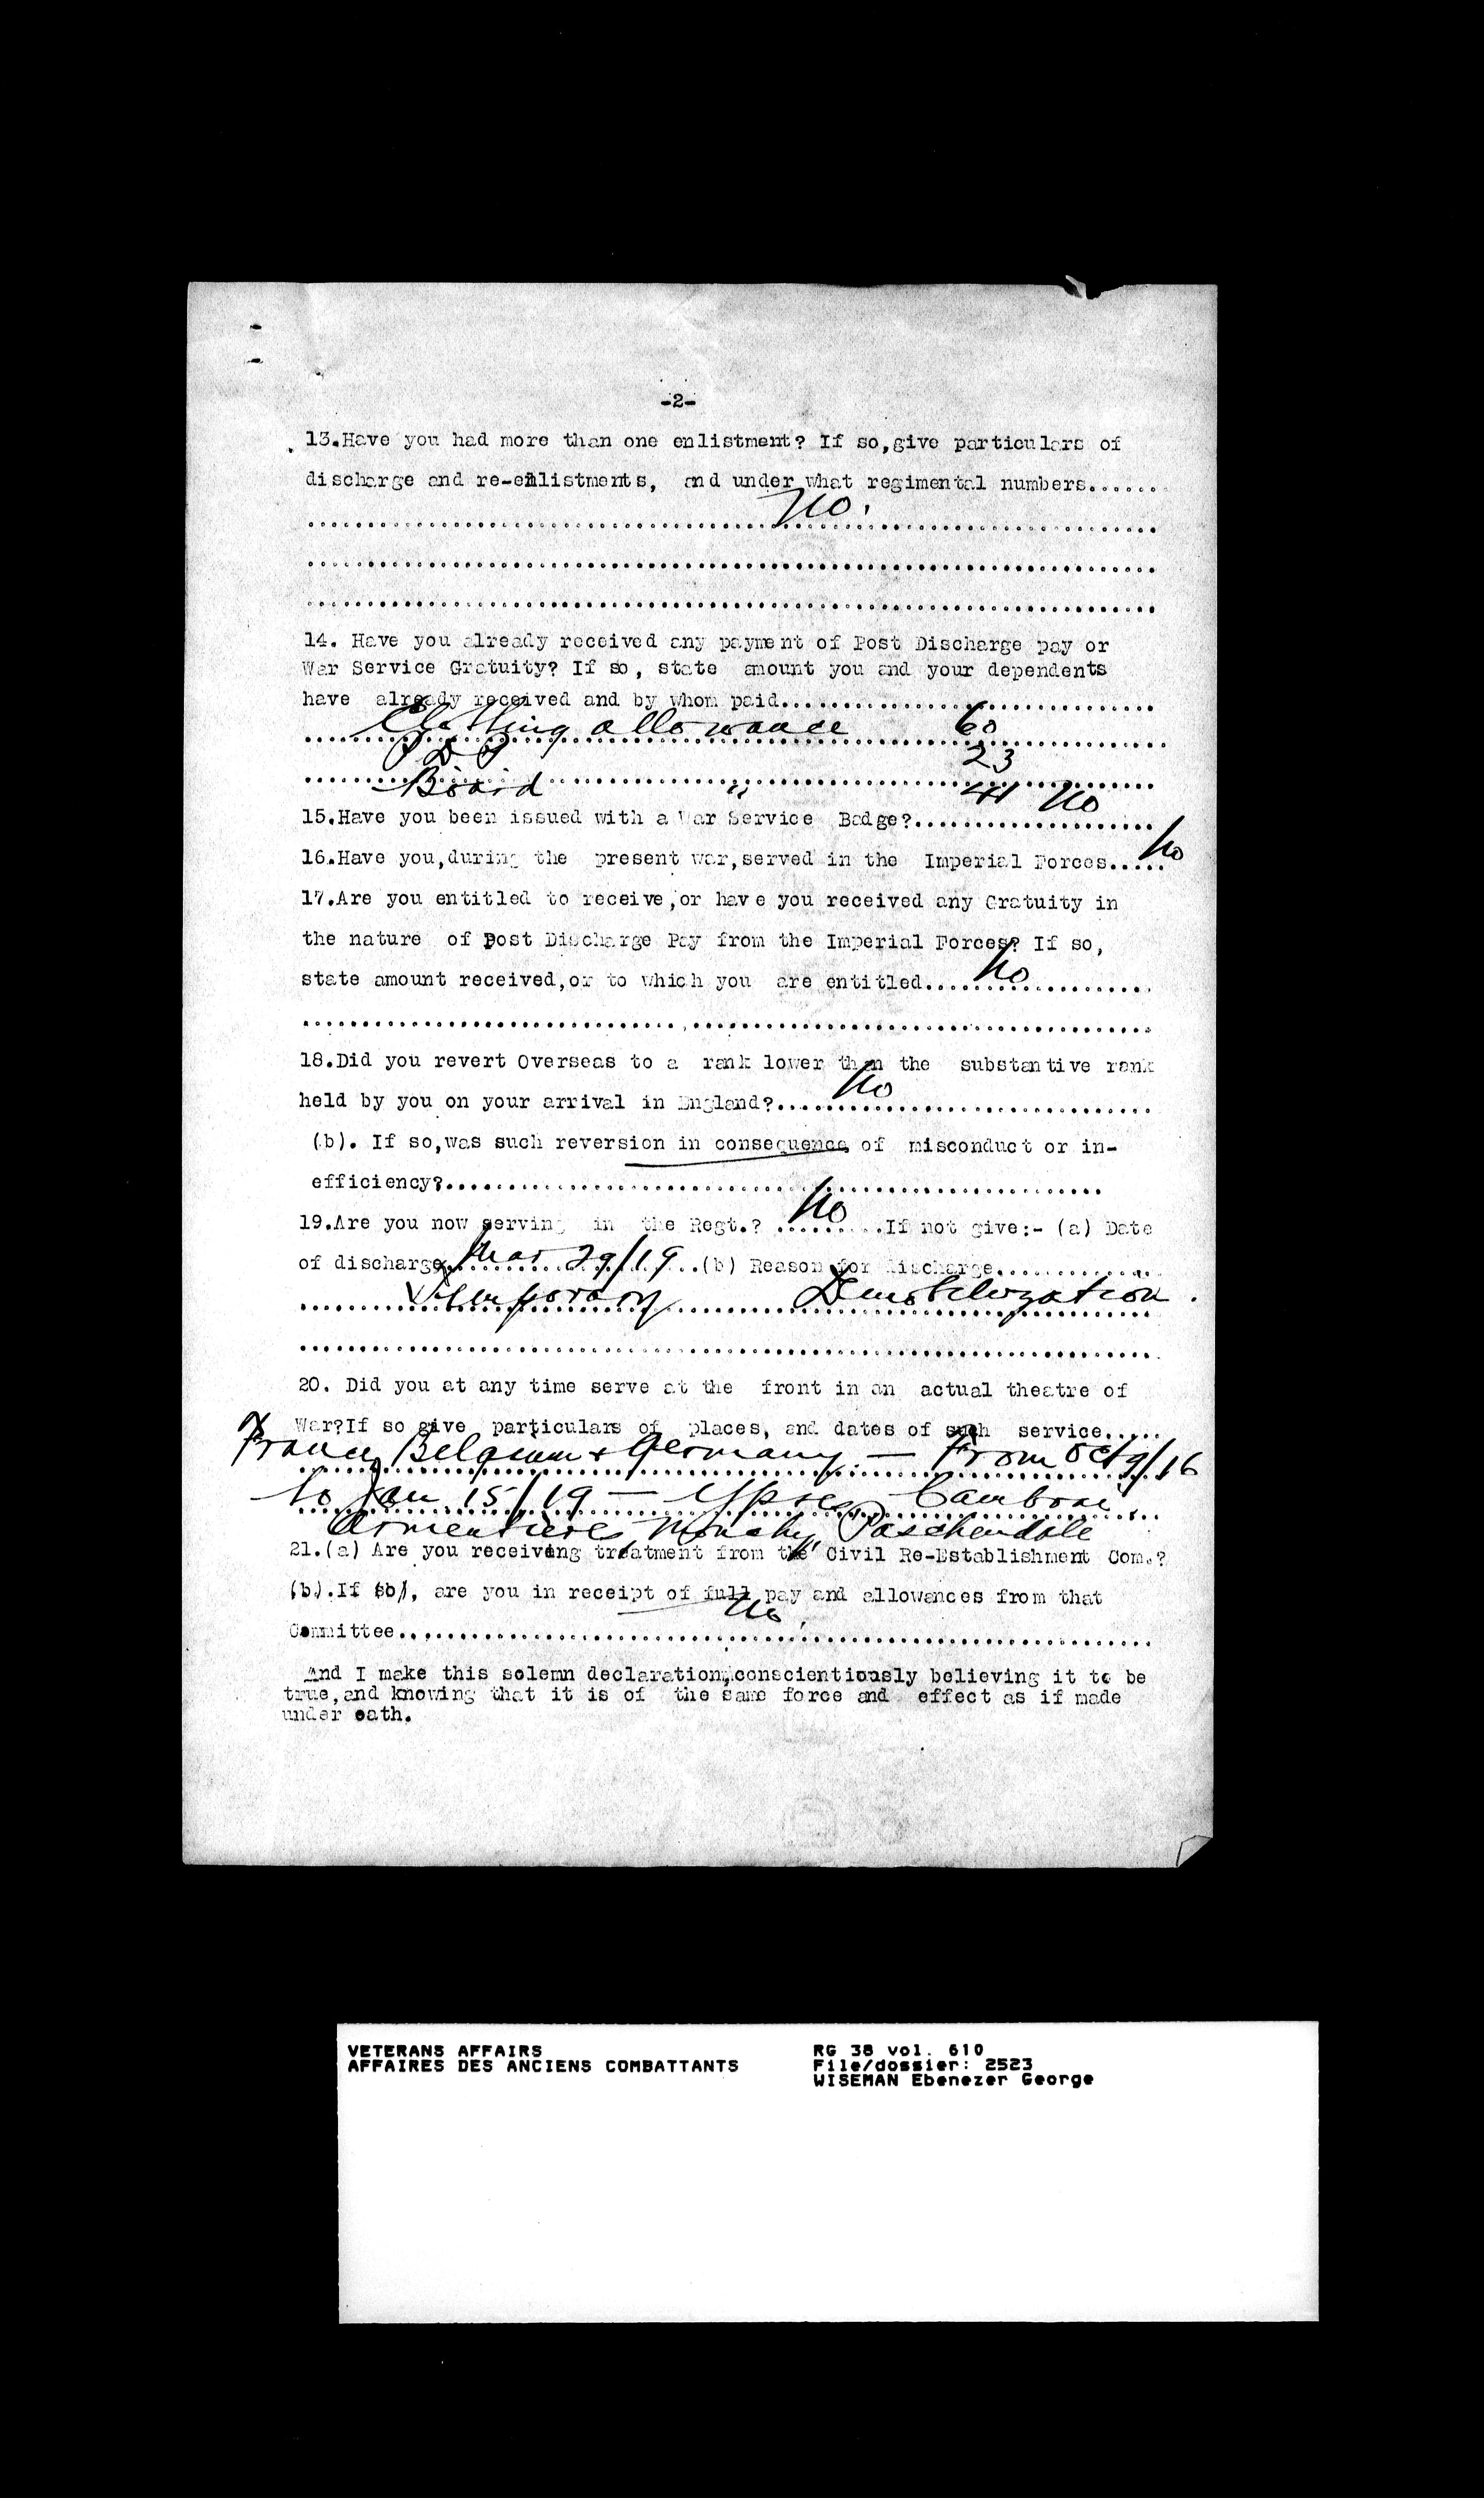 -2-
13.Have you had more than one enlistment? If so,give particulars of
discharge and re-enlistments, and under what regimental numbers.......
No.
14. Have you already received any payment of Post Discharge pay or
War Service Gratuity? If so, state amount you and your dependents
have already received and by whom paid..............................
Clothing allowance 60
P D P 23
Board " 41
15.Have you been issued with a War Service Badge?.................... No
16.Have you,during the present war,served in the Imperial Forces..... No
17.Are you entitled to receive,or have you received any Gratuity in
the nature of Post Discharge Pay from the Imperial Forces? If so,
state amount received,or to which you are entitled.... No
18.Did you revert Overseas to a rank lower than the substantive rank
held by you on your arrival in England?.... No
(b). If so,was such reversion in consequence of misconduct or in-
efficiency?.......................................................
19.Are you now serving in the Regt.? No If not give:- (a) Date
of discharge Mar 29/19 (b) Reason for discharge..............
Temporary Demobilization.
20. Did you at any time serve at the front in an actual theatre of
War?If so give particulars of places, and dates of such service.....
France, Belgium & Germany — From Oct 9/16
to Jan 15/19 — Ypres, Cambrai,
Armentieres, Monchy, Paschendale
21.(a) Are you receiving treatment from the Civil Re-Establishment Com.?
(b).If so, are you in receipt of full pay and allowances from that
No
Committee..............................................................
And I make this solemn declaration,conscientiously believing it to be
true,and knowing that it is of the same force and effect as if made
under oath.
VETERANS AFFAIRS RG 38 vol. 610
AFFAIRES DES ANCIENS COMBATTANTS File/dossier: 2523
WISEMAN Ebenezer George